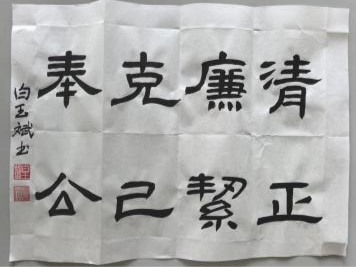 清正
廉絜
克己
奉公
白玉斌书